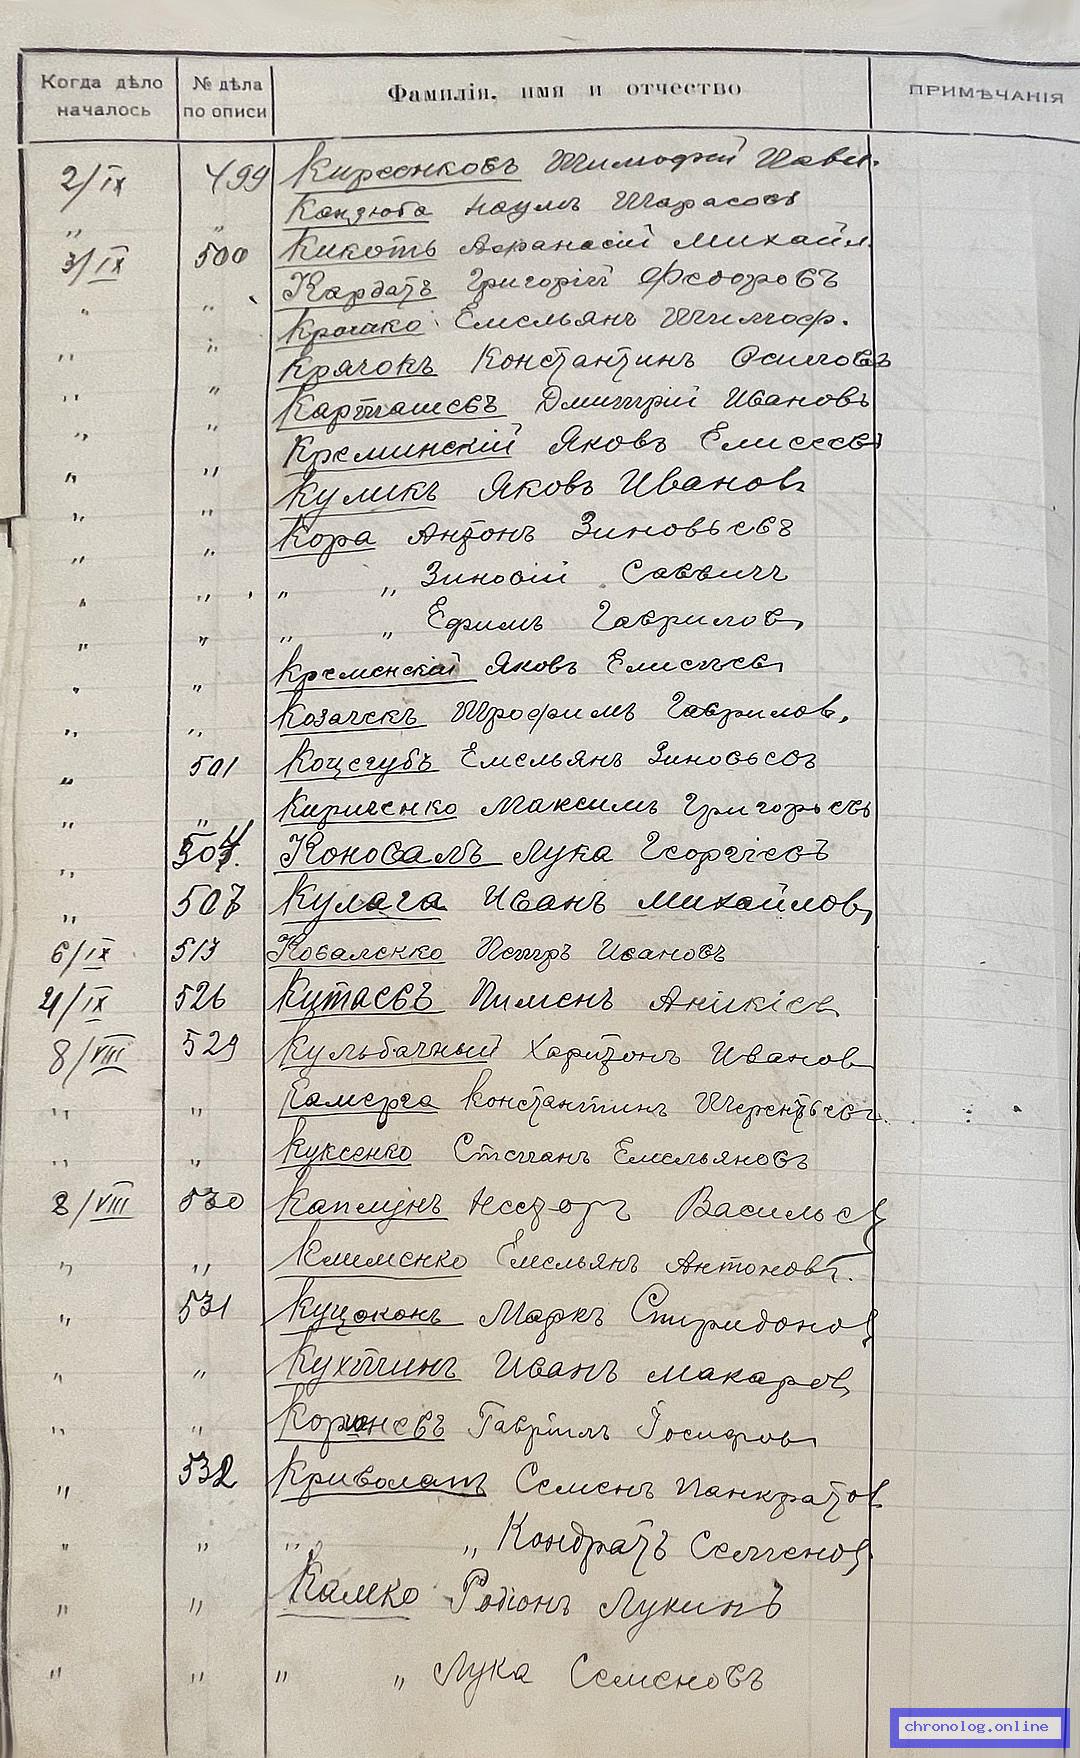 Когда дѣло началось
№ дѣла по описи
Фамилія, имя и отчество
ПРИМѢЧАНІЯ
2/IX 499 Кирсенковъ Тимофей Павл.
" " Кандюба Наумъ Тарасовъ
3/IX 500 Кикоть Афанасій Михайл.
" " Кардатъ Григорій Федоровъ
" " Крошко Емельянъ Тимоф.
" " Крячокъ Константинъ Осиповъ
" " Карташевъ Дмитрій Ивановъ
" " Креминскій Яковъ Елисеевъ
" " Куликъ Яковъ Ивановъ
" " Кора Антонъ Зиновьевъ
" " " " Зиновій Саввичъ
" " " " Ефимъ Гавриловъ
" " Кременскій Яковъ Елисѣевъ
" " Козачекъ Трофимъ Гавриловъ
" 501 Коцегубъ Емельянъ Зиновьевъ
" " Кириченко Максимъ Григорьевъ
" 504 Коновалъ Лука Георгіевъ
" 507 Кулага Иванъ Михайловъ
6/IX 513 Коваленко Петръ Ивановъ
4/IX 526 Кутаевъ Пименъ Аникіев
8/VIII 529 Кульбачный Харитонъ Иванов
" " Камерга Константинъ Терентьевъ
" " Куксенко Степанъ Емельяновъ
8/VIII 530 Каплунъ Несторъ Васильев
" " Клименко Емельянъ Антоновъ
" 531 Куцоконь Маркъ Спиридонов
" " Кухтинъ Иванъ Макаров
" " Корнева Гавріилъ Іосифов
" 532 Криволапъ Семенъ Панкратов
" " " " Кондратъ Семенов
" " Камко Родіонъ Лукинъ
" " " " Лука Семеновъ
chronolog.online